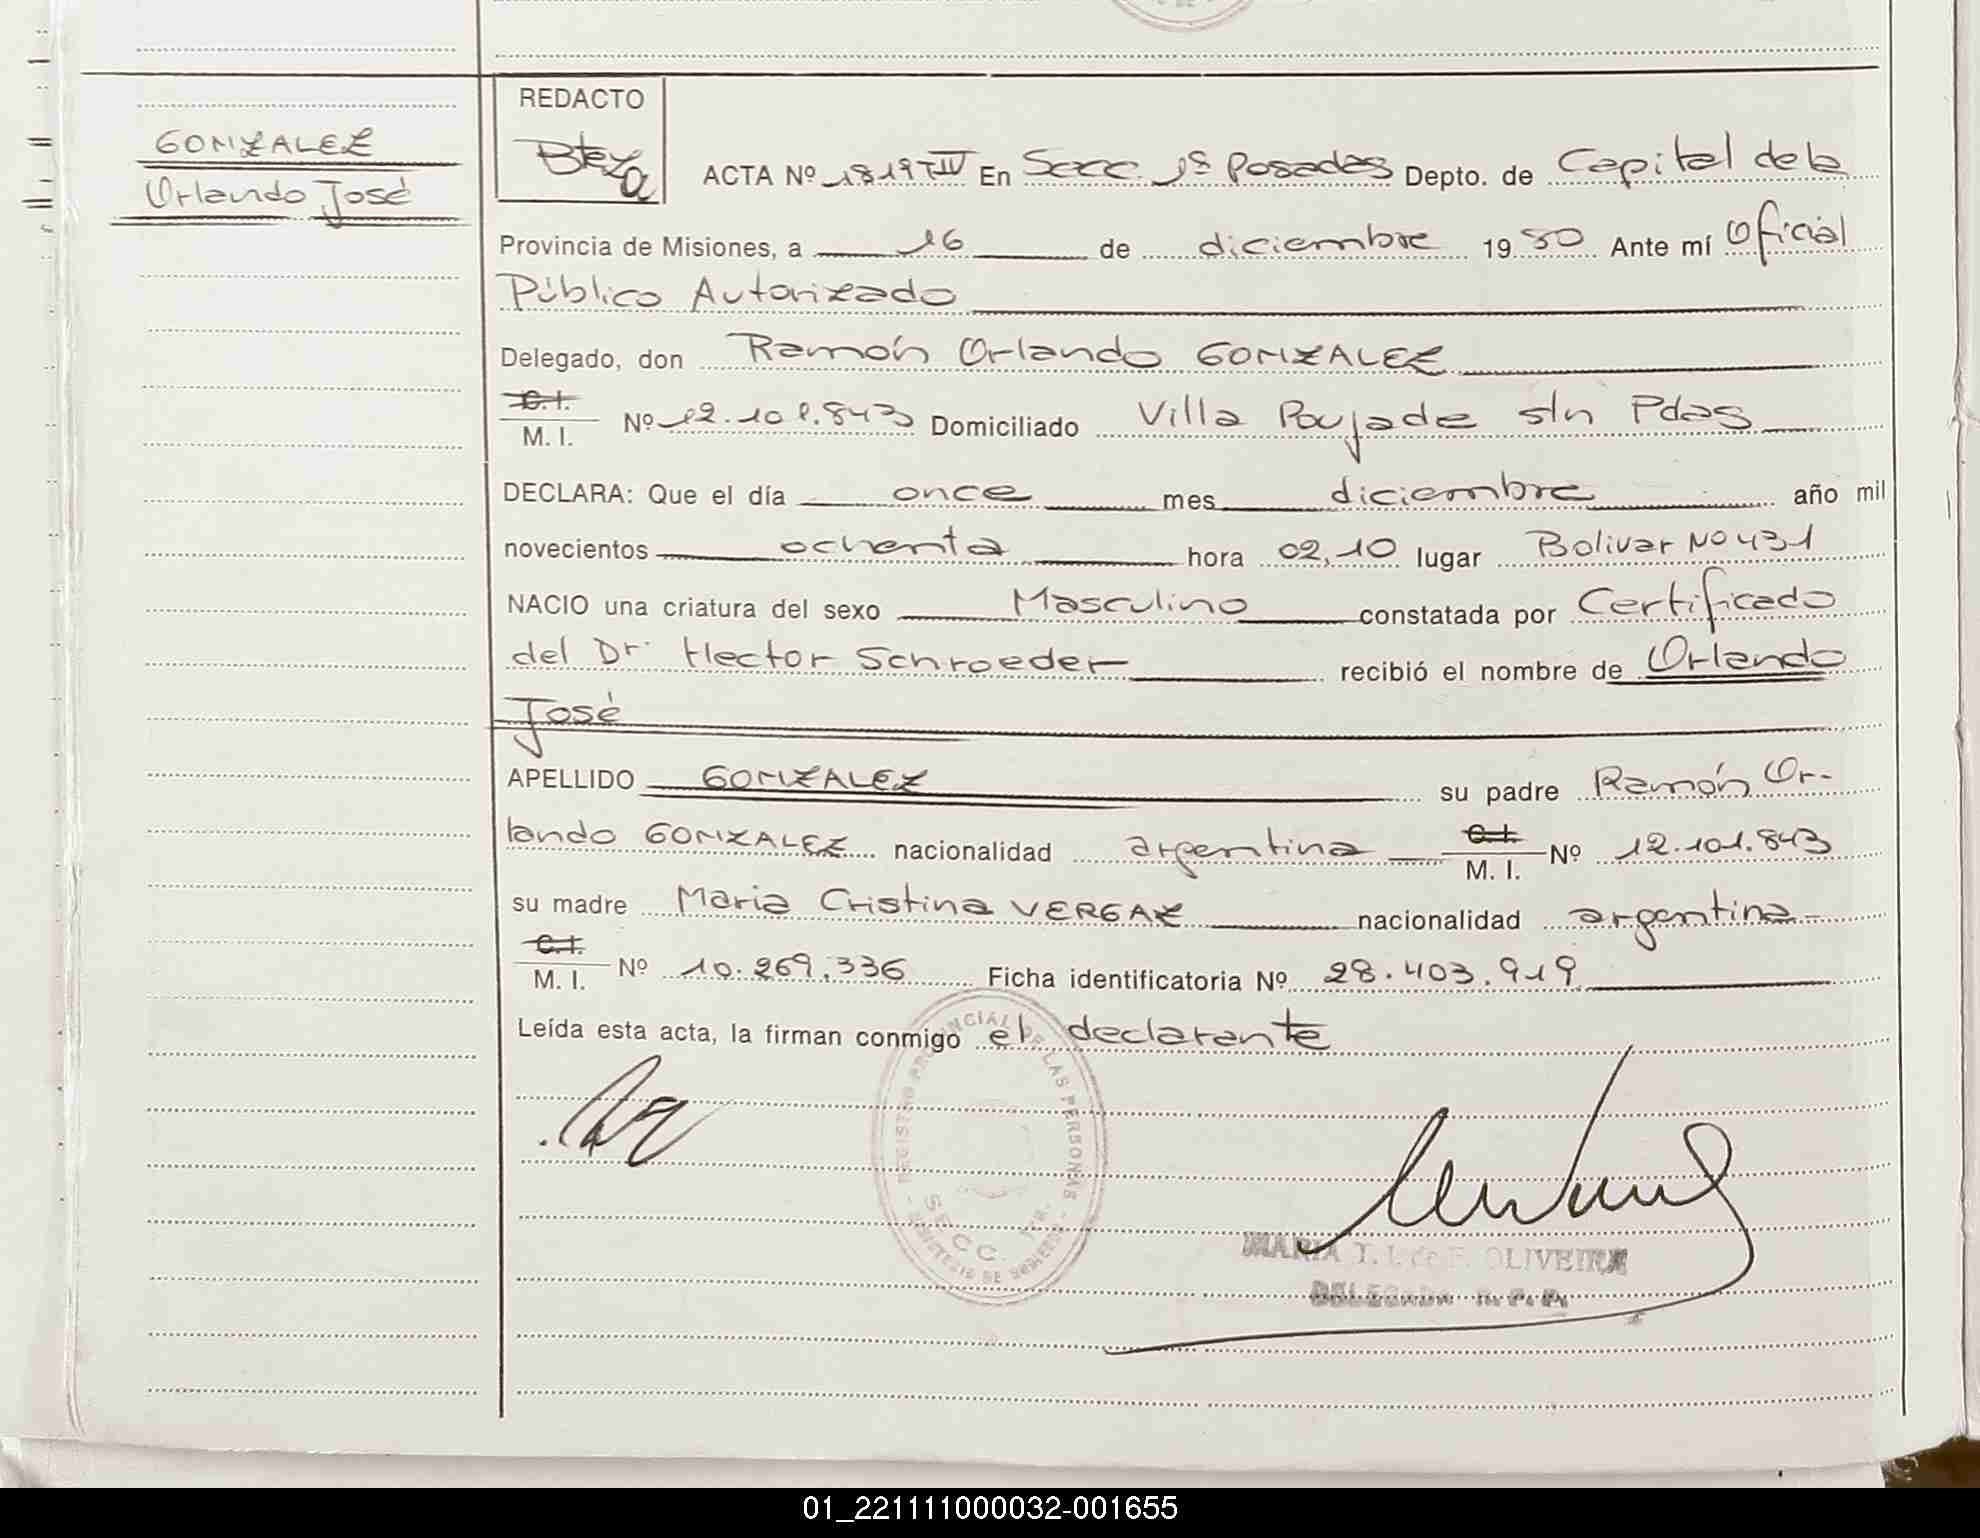 GONZALEZ
Orlando José
REDACTO
Bteza
ACTA Nº 1819 TIV En Secc. 1ª Posadas Depto. de Capital de la
Provincia de Misiones, a 16 de diciembre 1980 Ante mí Oficial
Público Autorizado
Delegado, don Ramón Orlando GONZALEZ
C.I.
M. I. Nº 12.101.843 Domiciliado Villa Poujade s/n Pdas
DECLARA: Que el día once mes diciembre año mil
novecientos ochenta hora 02,10 lugar Bolivar Nº 431
NACIO una criatura del sexo Masculino constatada por Certificado
del Dr. Hector Schroeder recibió el nombre de Orlando
José
APELLIDO GONZALEZ su padre Ramón Or-
lando GONZALEZ nacionalidad argentina C.I. M. I. Nº 12.101.843
su madre Maria Cristina VERGAZ nacionalidad argentina
C.I.
M. I. Nº 10.269.336 Ficha identificatoria Nº 28.403.919
Leída esta acta, la firman conmigo el declarante
REGISTRO PROVINCIAL DE LAS PERSONAS
SECC. 1ra.
MINISTERIO DE GOBIERNO
MARIA T. I. de F. OLIVEIRA
DELEGADA R. P. P.
01_221111000032-001655